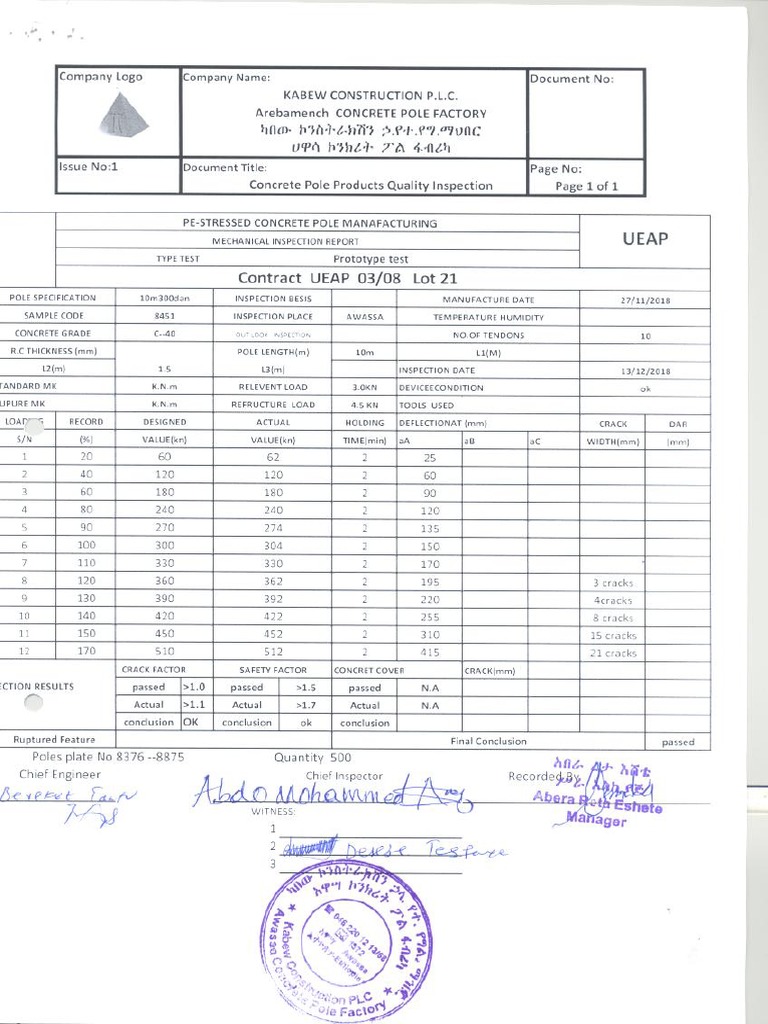 Company Logo
Company Name:
KABEW CONSTRUCTION P.L.C.
Arebamench CONCRETE POLE FACTORY
ካበው ኮንስትራክሽን ኃ.የተ.የግ.ማህበር
ሀዋሳ ኮንክሪት ፖል ፋብሪካ
Document No:
Issue No:1
Document Title:
Concrete Pole Products Quality Inspection
Page No:
Page 1 of 1
PE-STRESSED CONCRETE POLE MANAFACTURING
MECHANICAL INSPECTION REPORT
TYPE TEST Prototype test
UEAP
Contract UEAP 03/08 Lot 21
POLE SPECIFICATION 10m300dan INSPECTION BESIS MANUFACTURE DATE 27/11/2018
SAMPLE CODE 8451 INSPECTION PLACE AWASSA TEMPERATURE HUMIDITY
CONCRETE GRADE C--40 OUT LOOK INSPECTION NO.OF TENDONS 10
R.C THICKNESS (mm) POLE LENGTH(m) 10m L1(M)
L2(m) 1.5 L3(m) INSPECTION DATE 13/12/2018
TANDARD MK K.N.m RELEVENT LOAD 3.0KN DEVICEECONDITION ok
UPURE MK K.N.m REFRUCTURE LOAD 4.5 KN TOOLS USED
LOADING RECORD DESIGNED ACTUAL HOLDING DEFLECTIONAT (mm) CRACK DAR
S/N (%) VALUE(kn) VALUE(kn) TIME(min) aA aB aC WIDTH(mm) (mm)
1 20 60 62 2 25
2 40 120 120 2 60
3 60 180 180 2 90
4 80 240 240 2 120
5 90 270 274 2 135
6 100 300 304 2 150
7 110 330 330 2 170
8 120 360 362 2 195 3 cracks
9 130 390 392 2 220 4cracks
10 140 420 422 2 255 8 cracks
11 150 450 452 2 310 15 cracks
12 170 510 512 2 415 21 cracks
CRACK FACTOR SAFETY FACTOR CONCRET COVER CRACK(mm)
ECTION RESULTS passed >1.0 passed >1.5 passed N.A
Actual >1.1 Actual >1.7 Actual N.A
conclusion OK conclusion ok conclusion
Ruptured Feature Final Conclusion passed
Poles plate No 8376 --8875 Quantity 500
Chief Engineer Chief Inspector Recorded By
Abdo Mohammed
Abera Reta Eshete
Manager
WITNESS:
1
2 Derese Tesfaye
3
Kabew Construction PLC
Awassa Concrete Pole Factory